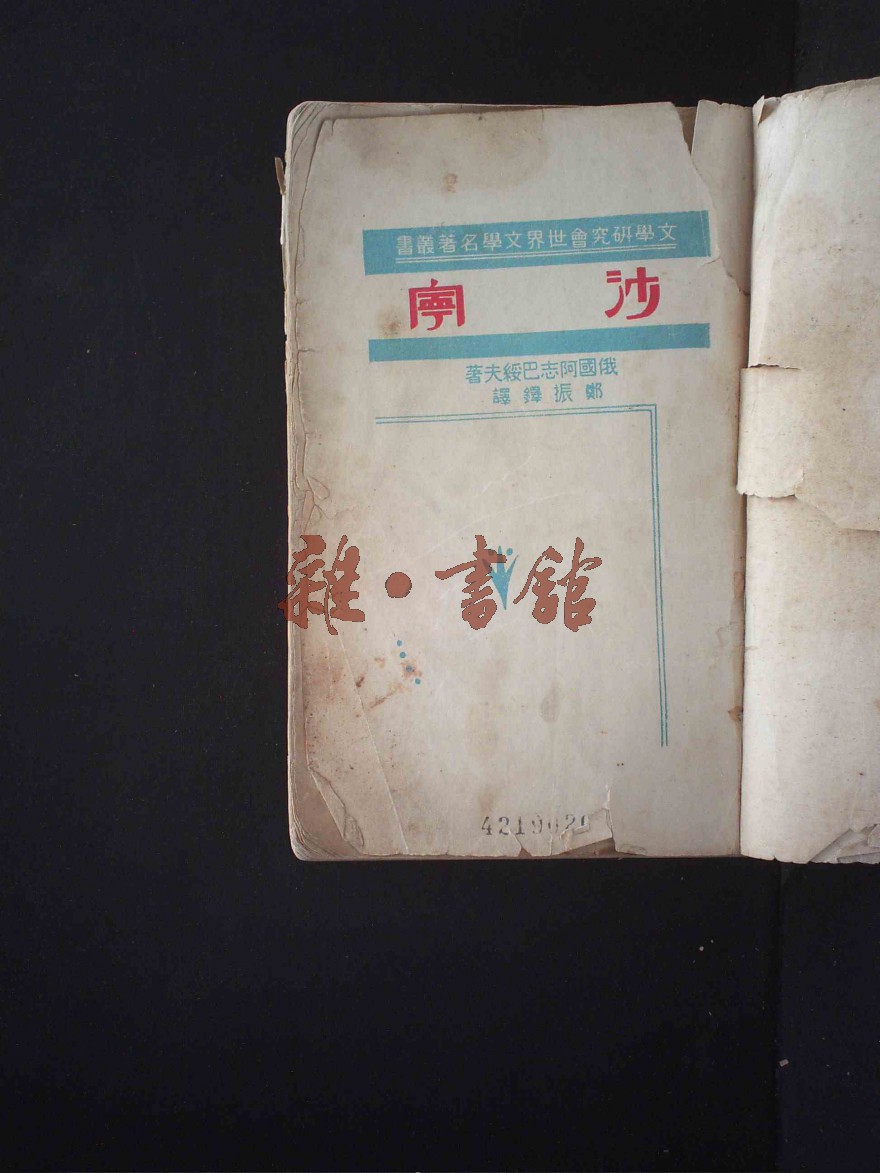 文學研究會世界文學名著叢書
沙甯
俄國阿志巴綏夫著
鄭振鐸譯
雜·書館